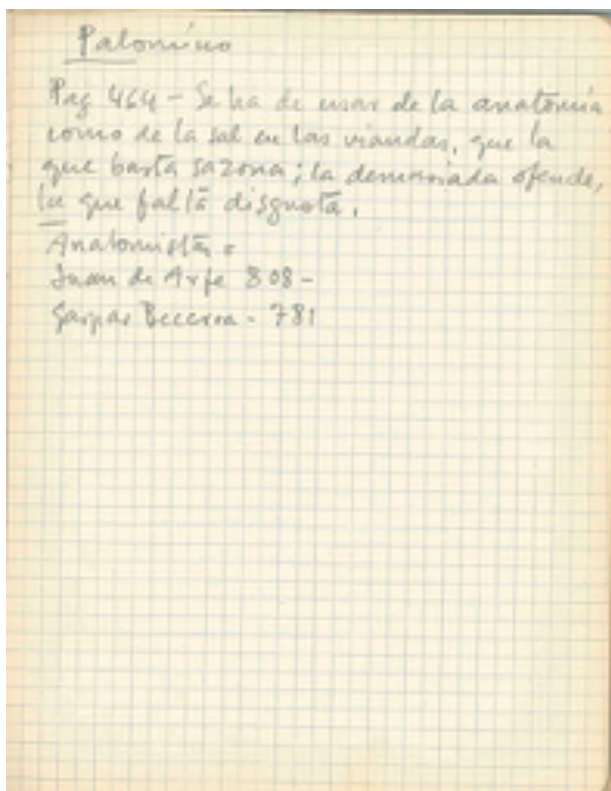 Palomino
Pag 464 - Se ha de usar de la anatomía
como de la sal en las viandas, que la
que basta sazona; la demasiada ofende,
la que falta disgusta.
Anatomistas =
Juan de Arfe 808 -
Gaspar Becerra - 781